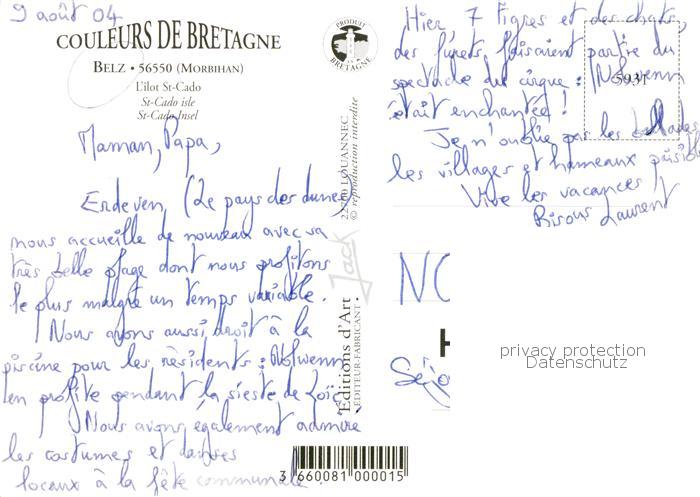 9 août 04
COULEURS DE BRETAGNE
PRODUIT EN BRETAGNE
BELZ • 56550 (MORBIHAN)
L'îlot St-Cado
St-Cado isle
St-Cado Insel
Maman, Papa,
Erdeven, (le pays des dunes)
nous accueille de nouveau avec sa
très belle plage dont nous profitons
le plus malgré un temps variable.
Nous avons aussi droit à la
piscine pour les résidents : Nolwenn
en profite pendant la sieste de Loïc.
Nous avons également admiré
les costumes et danses
locaux à la fête communale.
Editions d'Art Jack
EDITEUR-FABRICANT •
22700 LOUANNEC
© reproduction interdite
3 660081 000015
Hier 7 Tigres et des chats,
des furets, faisaient partie du
spectacle du cirque : Nolwenn
était enchantée !
5931
Je n'oublie pas les ballades
les villages et hameaux paisibl
Vive les vacances !
Bisous Laurent
NO
H
Séjo
privacy protection
Datenschutz